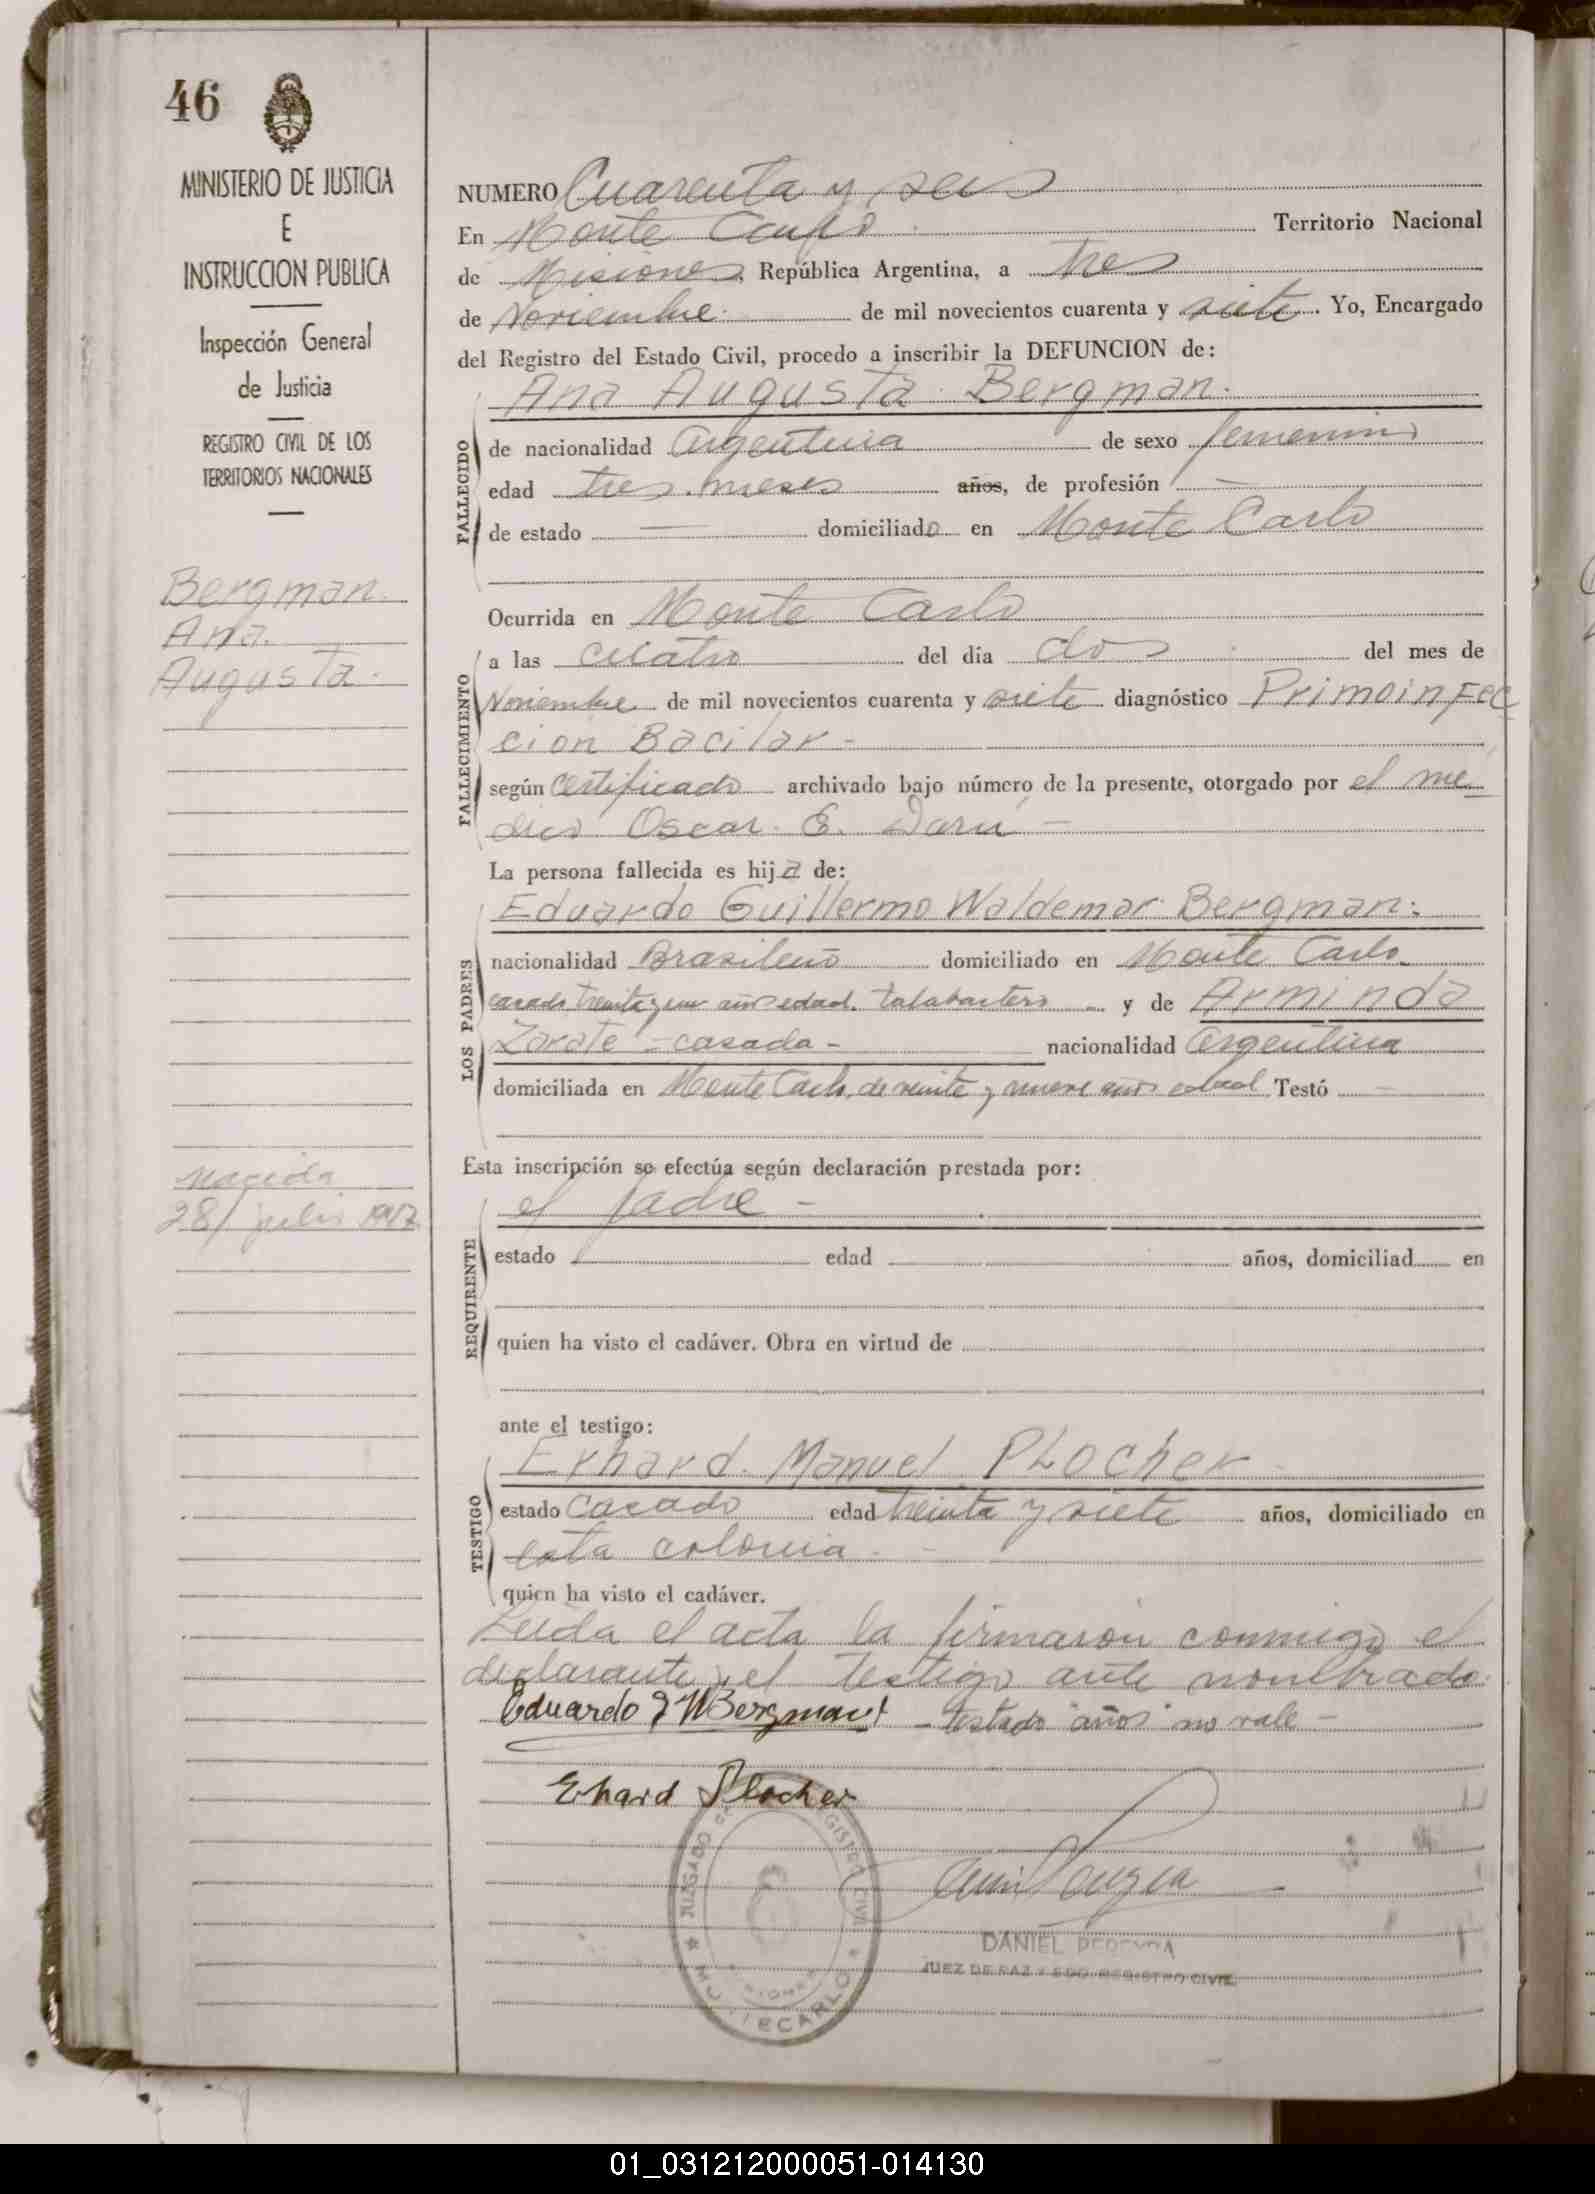 46
MINISTERIO DE JUSTICIA
E
INSTRUCCION PUBLICA
Inspección General
de Justicia
REGISTRO CIVIL DE LOS
TERRITORIOS NACIONALES
Bergman.
Ana.
Augusta.
Nacida
28/ julio 1947
NUMERO Cuarenta y seis
En Monte Carlo Territorio Nacional
de Misiones, República Argentina, a tres
de Noviembre de mil novecientos cuarenta y siete. Yo, Encargado
del Registro del Estado Civil, procedo a inscribir la DEFUNCION de:
Ana Augusta Bergman.
FALLECIDO
de nacionalidad Argentina de sexo femenino
edad tres meses años, de profesión —
de estado — domiciliado en Monte Carlo
Ocurrida en Monte Carlo
FALLECIMIENTO
a las cuatro del día dos del mes de
Noviembre de mil novecientos cuarenta y siete diagnóstico Primoinfec
cion Bacilar -
según certificado archivado bajo número de la presente, otorgado por el mé
dico Oscar E. Darú -
La persona fallecida es hija de:
LOS PADRES
Eduardo Guillermo Waldemar Bergman.
nacionalidad Brasileño domiciliado en Monte Carlo
casado treinta y un años edad. talabartero - y de Arminda
Zarate - casada - nacionalidad Argentina
domiciliada en Monte Carlo, de veinte y nueve años edad Testó —
Esta inscripción se efectúa según declaración prestada por:
REQUIRENTE
el padre -
estado edad años, domiciliad en
quien ha visto el cadáver. Obra en virtud de
ante el testigo:
TESTIGO
Erhard. Manuel PLocher
estado casado edad treinta y siete años, domiciliado en
esta colonia -
quien ha visto el cadáver.
Leida el acta la firmaron conmigo el
declarante y el testigo ante nombrado.
Eduardo G W Bergmann - testado "años" no vale -
Ehard Plocher
JUZGADO DE REGISTRO CIVIL
MONTECARLO
DANIEL
JUEZ DE PAZ Y EDO. REGISTRO CIVIL
01_031212000051-014130